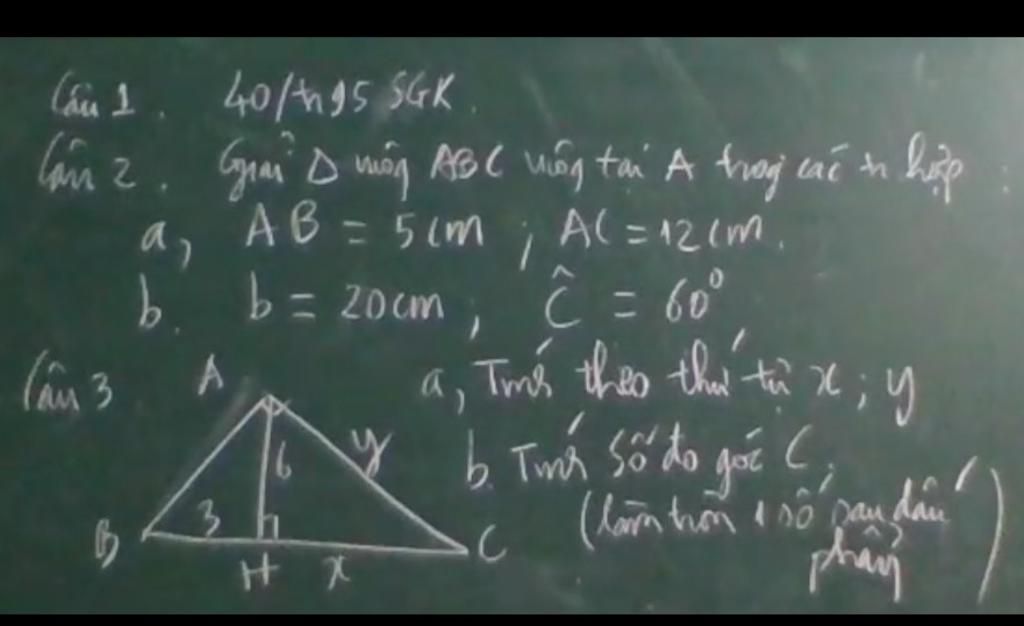 Câu 1. 40/tr95 SGK.
Câu 2. Giải Δ vuông ABC vuông tại A trong các tr hợp :
a, AB = 5cm ; AC = 12cm.
b. b = 20cm ; Ĉ = 60⁰
Câu 3 a, Tính theo thứ tự x ; y
b. Tính số đo góc C.
(làm tròn 1 số sau dấu phẩy)
A
6 y
3
B H x C